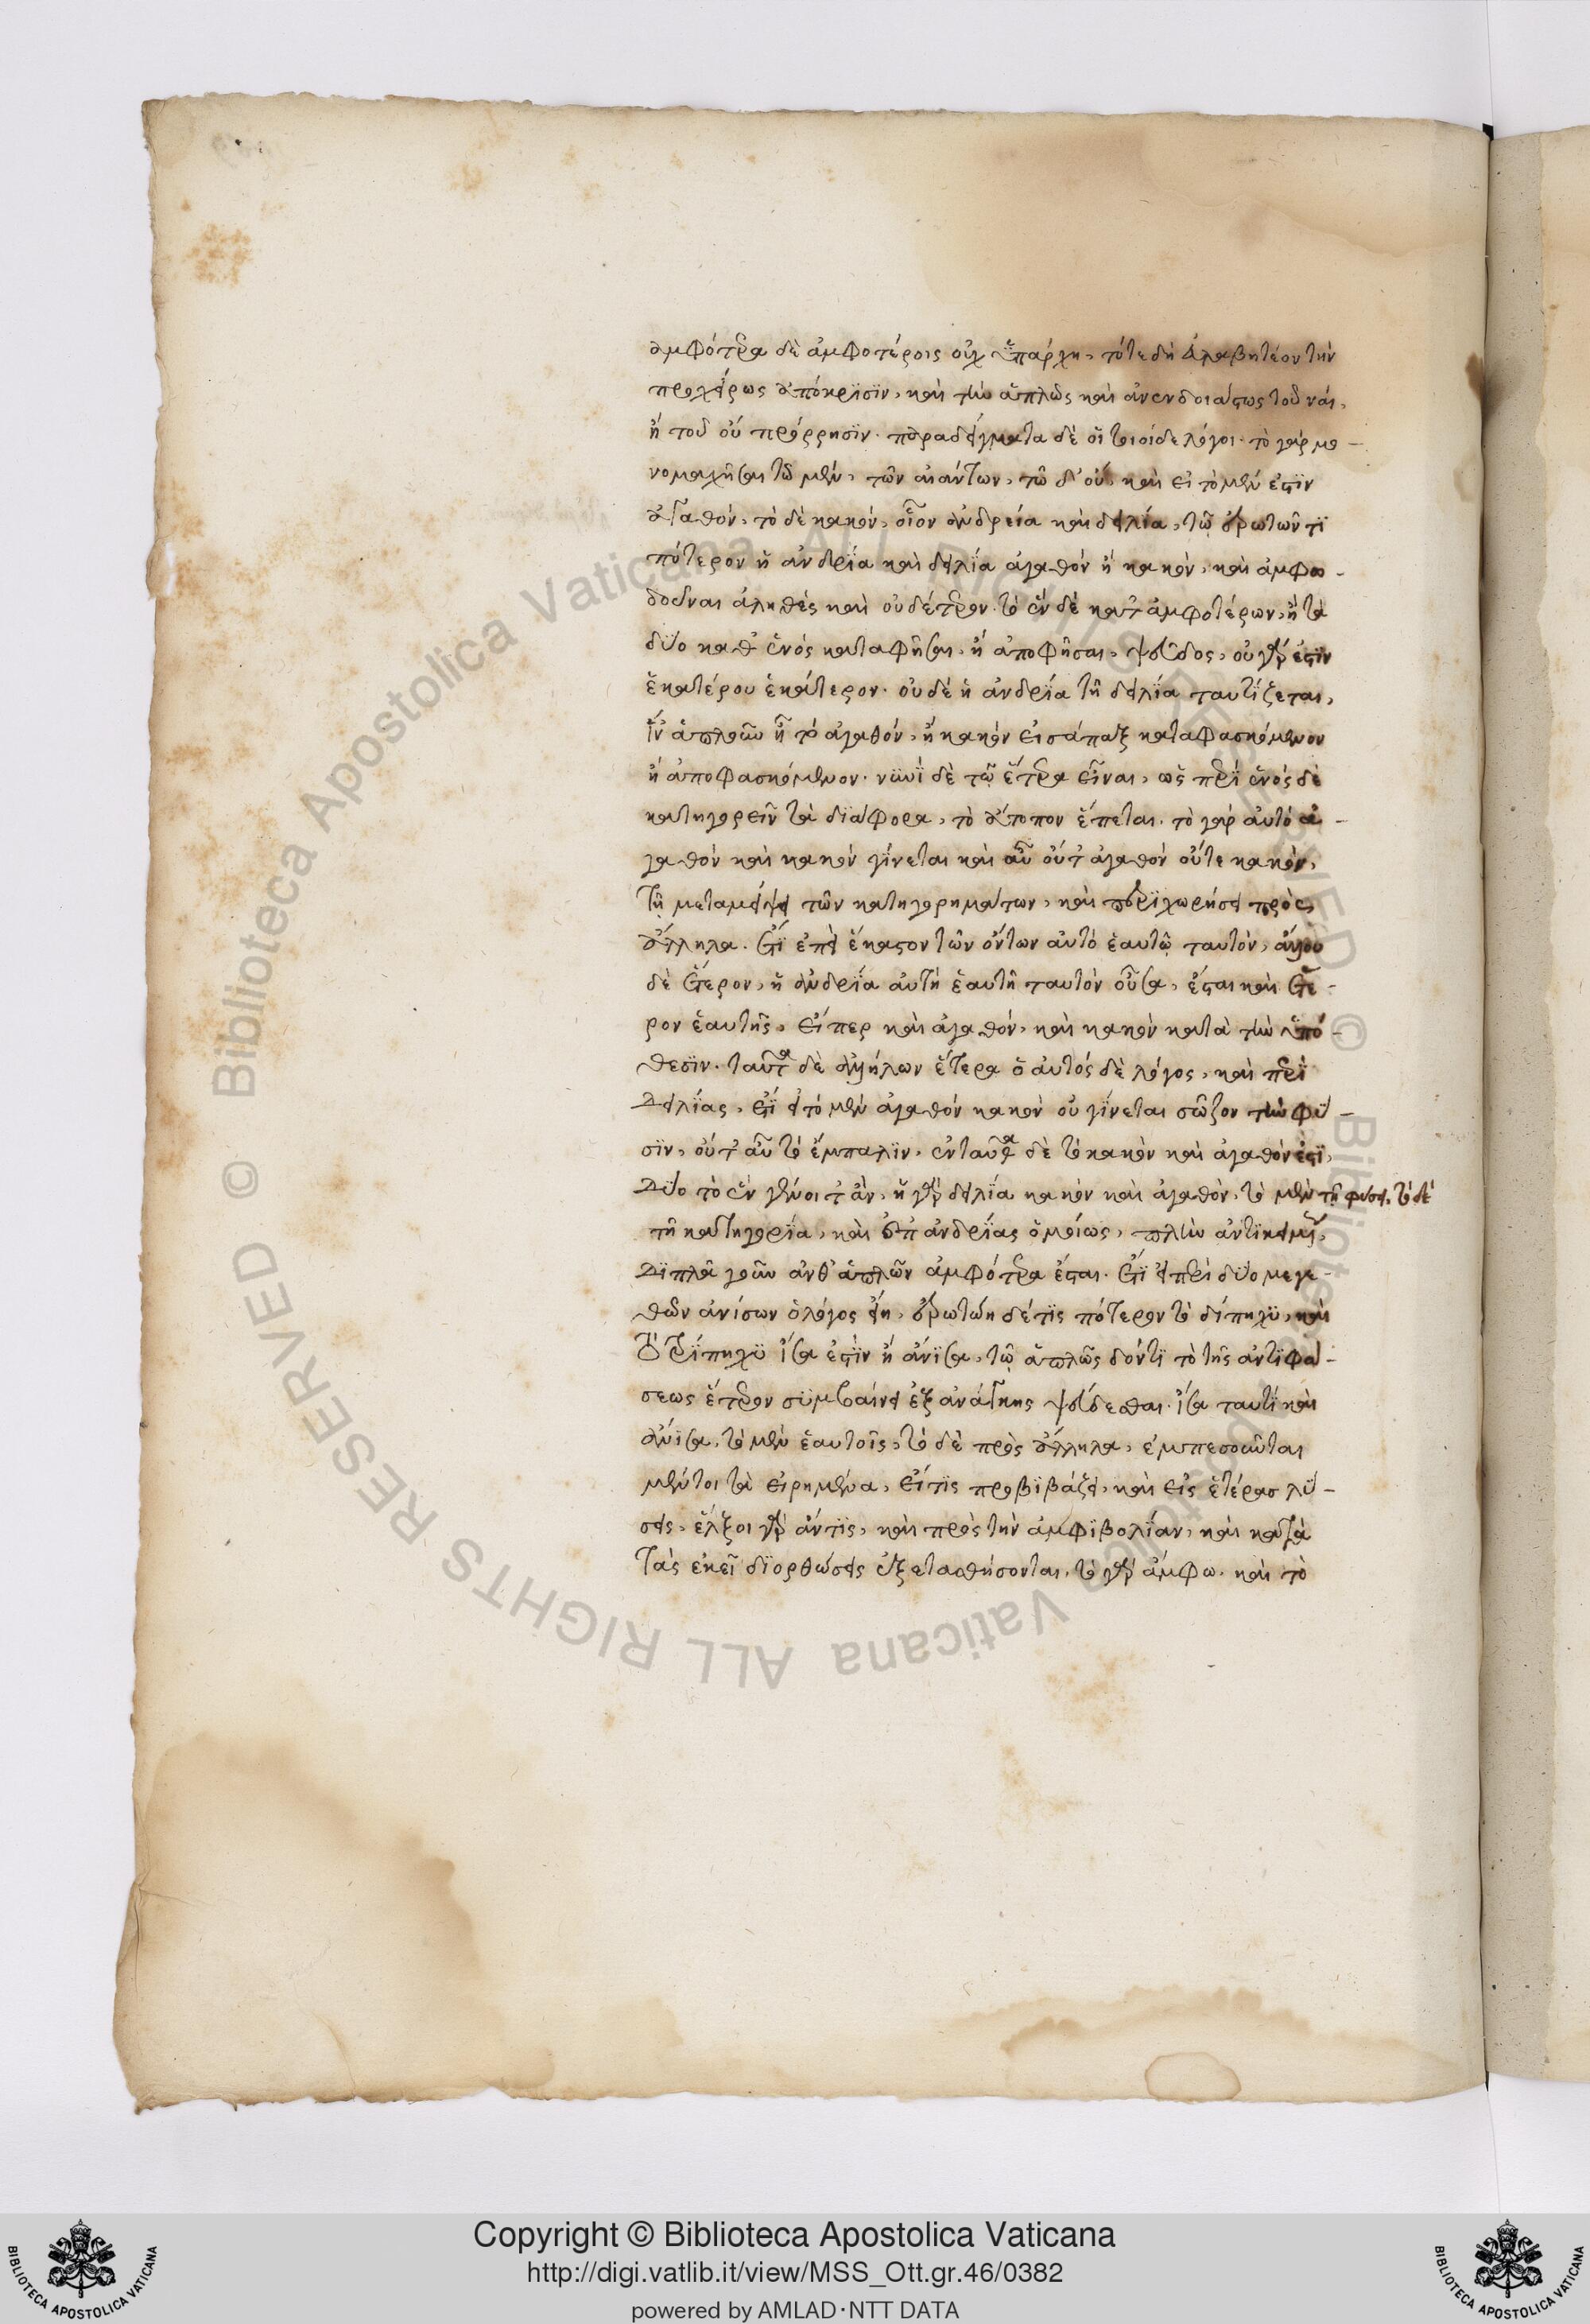 ἀμφότερα δὲ ἀμφοτέροις οὐχ ὑπάρχη, τότε δὴ εὐλαβητέον τὴν
προχείρως ἀπόκρισϊν, καὶ τὴν ἁπλῶς καὶ ἀνενδοιάστως τοῦ ναί,
ἢ τοῦ οὐ πρόρρησϊν. παραδείγματα δὲ οἵ τοιοίδε λόγοι. τὸ γάρ μο-
νομαχῆσαι τῶ μὲν, τῶν αἰάντων, τῶ δ' οὐ, καὶ εἰ τὸ μὲν ἐστϊν
ἀγαθόν, τὸ δὲ κακόν, οἷον ἀνδρεία καὶ δειλία, τῷ ἐρωτῶντϊ
πότερον ἡ ἀνδρϊα καὶ δειλϊα ἀγαθόν ἢ κακόν, καὶ ἄμφω
δοῦναι ἀληθὲς καὶ οὐδέτερον. τὸ ἓν δὲ κατ' ἀμφοτέρων, ἢ τὰ
δύο καθ' ἑνός καταφῆσαι, ἢ ἀποφῆσαι, ψεῦδος, οὐ γάρ ἐστϊν
ἑκατέρου ἑκάτερον. οὐδέ ἡ ἀνδρϊα τῆ δειλϊα ταυτϊζεται,
ἵν' ἁπλοῦν ἦ τὸ ἀγαθόν, ἢ κακόν εἰσάπαξ καταφασκόμενον
ἢ ἀποφασκόμενον. νϋνϊ δὲ τῷ ἕτερα εἶναι, ὡς περϊ ἑνός δὲ
κατηγορεῖν τὰ δϊάφορα, τὸ ἄτοπον ἕπεται. τὸ γάρ αὐτό ἀ-
γαθόν καὶ κακόν γίνεται καὶ αὖ οὔτ' ἀγαθόν οὔτε κακόν,
τῇ μεταμείψει τῶν κατηγορημάτων, καὶ περϊχωρήσει πρὸς
ἄλληλα. ἔτϊ ἐπεὶ ἕκαστον τῶν ὄντων αὐτό ἑαυτῷ ταυτόν, ἄλλου
δὲ ἕτερον, ἡ ἀνδρϊα αὐτή ἑαυτῆ ταυτόν οὖσα, ἔσται καὶ ἕτε-
ρον ἑαυτῆς, εἴπερ καὶ ἀγαθόν, καὶ κακόν κατὰ τὴν ὑπό-
θεσϊν. ταῦτα δὲ ἀλλήλων ἕτερα ὁ αὐτός δὲ λόγος, καὶ περϊ
δειλϊας, ἔτϊ εἰ τὸ μὲν ἀγαθόν κακόν οὐ γίνεται σῶζον τὴν φύ-
σϊν, οὔτ' αὖ τὸ ἔμπαλϊν, ἐνταῦθα δὲ τὸ κακόν καὶ ἀγαθόν ἐστϊ,
δύο τὸ ἓν γένοιτ' ἂν, ἡ γὰρ δειλϊα κακόν καὶ ἀγαθόν, τὸ μὲν τῇ φύσει, τὸ δὲ
τῆ κατηγορϊα, καὶ ἐπ' ἀνδρϊας ὁμοίως, πλὴν ἀντϊκειμένως,
διπλᾶ γοῦν ἀνθ' ἁπλῶν ἀμφότερα ἔσται. ἔτϊ εἰ περὶ δύο μεγε-
θῶν ἀνίσων ὁ λόγος εἴη, ἐρωτώη δέ τϊς πότερον τὸ δίπηχϋ, καὶ
τὸ τρϊπηχϋ ἴσα ἐστϊν ἢ ἄνϊσα, τῷ ἁπλῶς δόντϊ τὸ τῆς ἀντϊφά-
σεως ἕτερον σϋμβαίνει ἐξ ἀνάγκης ψεύδεσθαι. ἴσα ταυτϊ καὶ
ἄνϊσα, τὸ μὲν ἑαυτοῖς, τὸ δὲ πρὸς ἄλληλα, ἐμπεσοῦνται
μέντοι τὰ εἰρημένα, εἴ τϊς προβϊβάζει, καὶ εἰς ἑτέρασ λύ-
σεις, ἕλξοι γὰρ ἄν τϊς, καὶ πρὸς τὴν ἀμφϊβολϊαν, καὶ κατὰ
τὰς ἐκεῖ δϊορθώσεις ἐξετασθήσονται, τὸ γάρ ἄμφω, καὶ τὸ
Copyright © Biblioteca Apostolica Vaticana
http://digi.vatlib.it/view/MSS_Ott.gr.46/0382
powered by AMLAD·NTT DATA
BIBLIOTECA APOSTOLICA VATICANA
BIBLIOTECA APOSTOLICA VATICANA
© Biblioteca Apostolica Vaticana ALL RIGHTS RESERVED
© Biblioteca Apostolica Vaticana ALL RIGHTS RESERVED